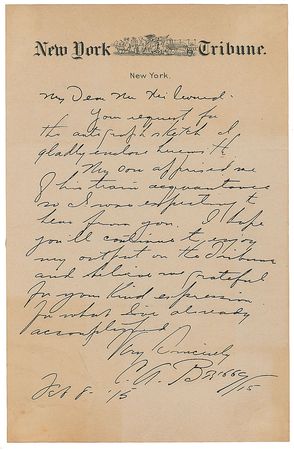 New York Tribune.
New York,
My Dear Mr
Your request for
the autograph sketch I
gladly enclose
My son apprised me
of his train acquaintance
so I was expecting to
hear from you. I hope
you'll continue to enjoy
my output on the Tribune
and believe me grateful
for your kind expression
for what I've already
accomplished
Very Sincerely
C. A. Briggs
Feb 8 - '15